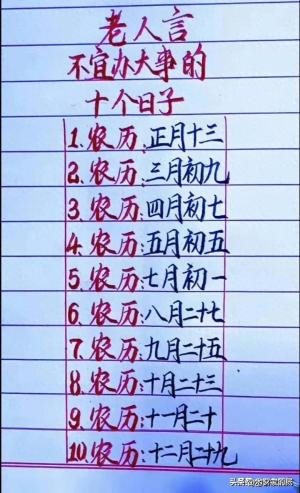 老人言
不宜办大事的
十个日子
1.农历:正月十三
2.农历:三月初九
3.农历:四月初七
4.农历:五月初五
5.农历:七月初一
6.农历:八月二十七
7.农历:九月二十五
8.农历:十月二十三
9.农历:十一月二十
10.农历:十二月二十九